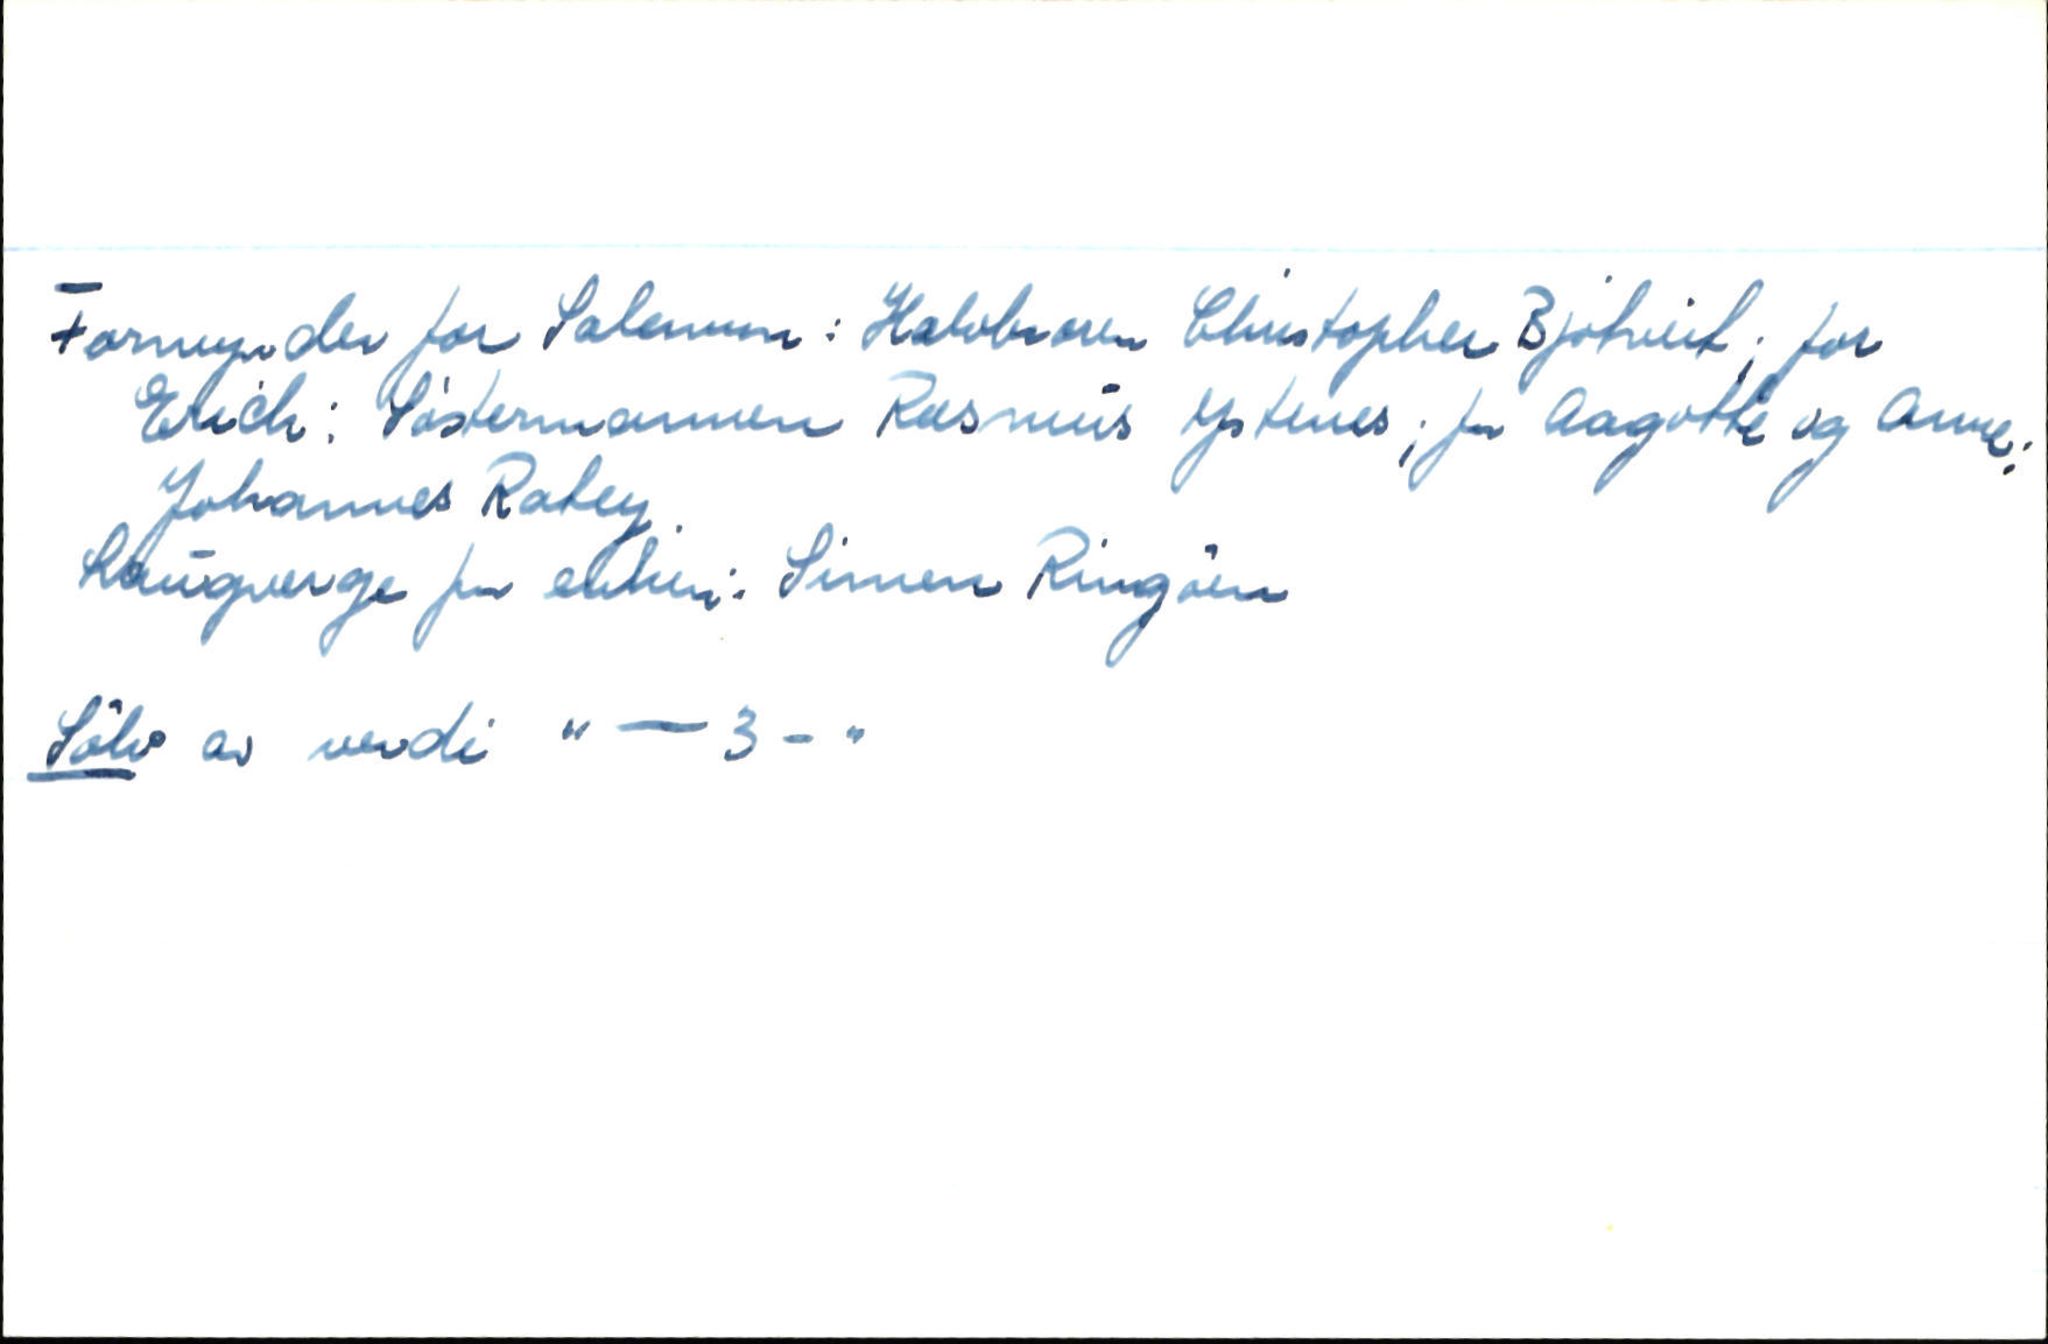 Formynder for Salamon: Halvbroren Christopher Bjötveit; for
Erich: Söstermannen Rasmus Ystenes; for Aagothe og Anne:
Johannes Ratey.
Laugverge for enken: Simen Ringöen
Sölv av verdi " — 3 - "